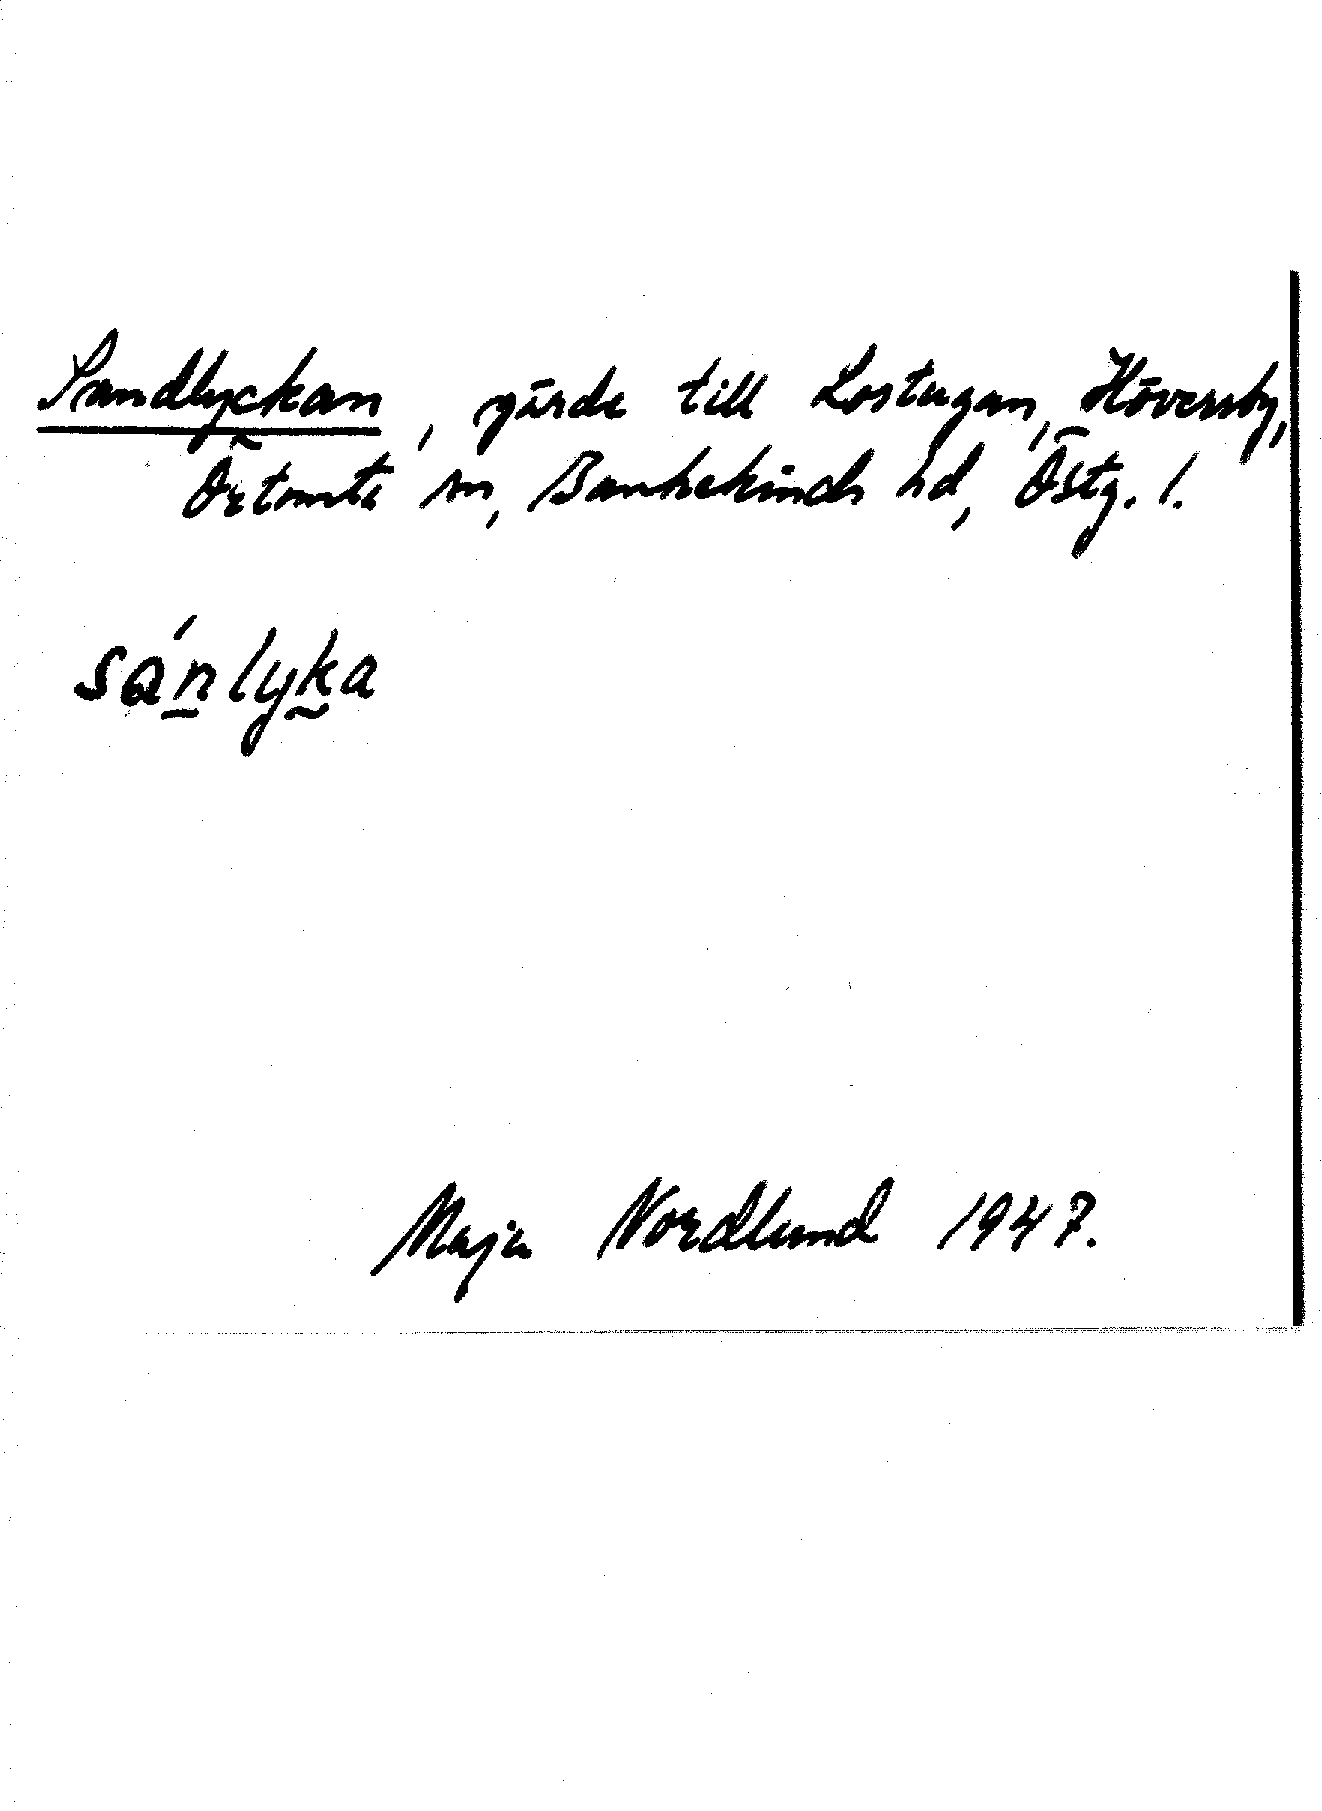 Sandlyckan, gärde till Lostugan, Höversby,
Örtomta sn, Bankekinds hd, Östg. l.
sánlyka
Maja Nordlund 1947.